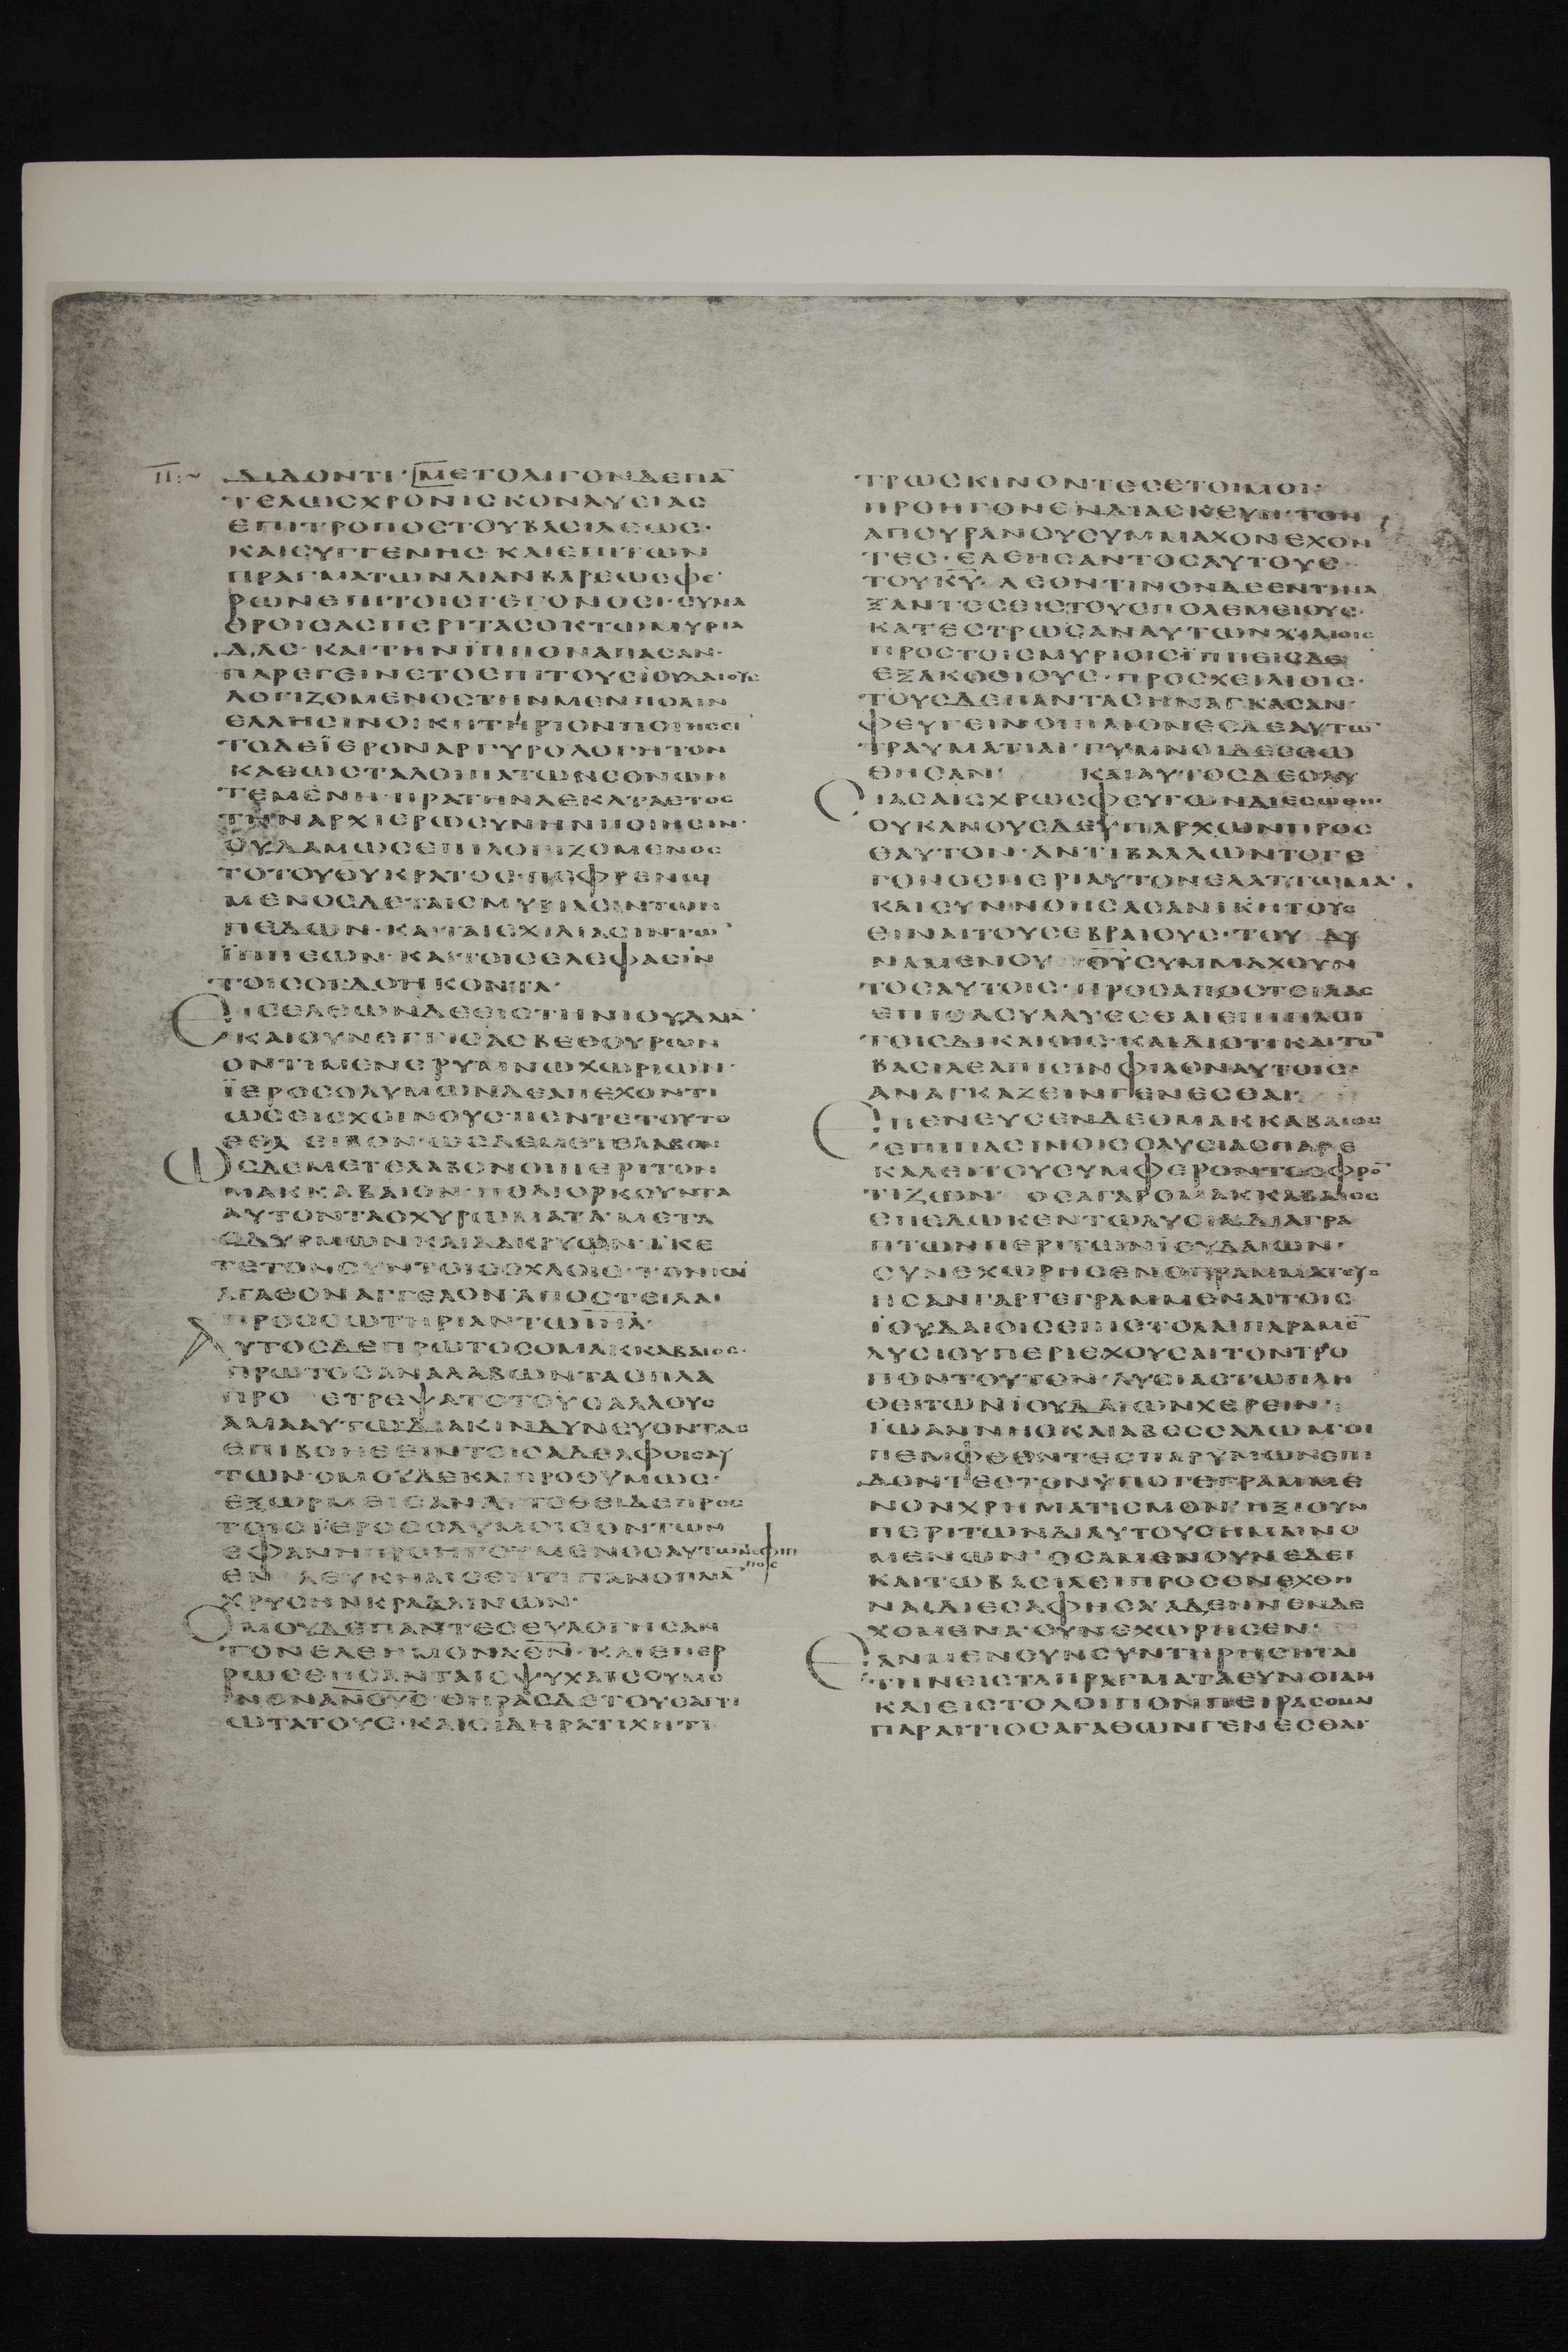 ΔΙΔΟΝΤΙ· ΜΕΤΟΛΙΓΟΝΔΕΠΑ
ΤΕΛΩϹΧΡΟΝΙϹΚΟΝΛΥϹΙΑϹ
ΕΠΙΤΡΟΠΟϹΤΟΥΒΑϹΙΛΕΩϹ·
ΚΑΙϹΥΓΓΕΝΗϹΚΑΙΕΠΙΤΩΝ
ΠΡΑΓΜΑΤΩΝΛΙΑΝΒΑΡΕΩϹΦΕ
ΡΩΝΕΠΙΤΟΙϹΓΕΓΟΝΟϹΙ·ϹΥΝΑ
ΘΡΟΙϹΑϹΠΕΡΙΤΑϹΟΚΤΩΜΥΡΙΑ
ΔΑϹ·ΚΑΙΤΗΝΪΠΠΟΝΑΠΑϹΑΝ·
ΠΑΡΕΓΕΙΝΕΤΟΕΠΙΤΟΥϹΪΟΥΔΑΙΟΥϹ
ΛΟΓΙΖΟΜΕΝΟϹΤΗΝΜΕΝΠΟΛΙΝ
ΕΛΛΗϹΙΝΟΙΚΗΤΗΡΙΟΝΠΟΙΗϹΕΙ
ΤΟΔΕΪΕΡΟΝΑΡΓΥΡΟΛΟΓΗΤΟΝ
ΚΑΘΩϹΤΑΛΟΙΠΑΤΩΝΕΘΝΩΝ
ΤΕΜΕΝΗ·ΠΡΑΤΗΝΔΕΚΑΤΑΕΤΟϹ
ΤΗΝΑΡΧΙΕΡΩϹΥΝΗΝΠΟΙΗϹΕΙΝ·
ΟΥΔΑΜΩϹΕΠΙΛΟΓΙΖΟΜΕΝΟϹ
ΤΟΤΟΥΘΥΚΡΑΤΟϹ·ΠΕΦΡΕΝΩ
ΜΕΝΟϹΔΕΤΑΙϹΜΥΡΙΑϹΙΝΤΩΝ
ΠΕΖΩΝ·ΚΑΙΤΑΙϹΧΙΛΙΑϹΙΝΤΩ
ΪΠΠΕΩΝ·ΚΑΙΤΟΙϹΕΛΕΦΑϹΙΝ
ΤΟΙϹΟΓΔΟΗΚΟΝΤΑ·
ΕΙϹΕΛΘΩΝΔΕΕΙϹΤΗΝΙΟΥΔΑΙΑ
ΚΑΙϹΥΝΕΓΓΙϹΑϹΒΕΘϹΟΥΡΩΝ
ΟΝΤΙΜΕΝΕΡΥΜΝΩΧΩΡΙΩΝ·
ΪΕΡΟϹΟΛΥΜΩΝΔΕΑΠΕΧΟΝΤΙ
ΩϹΕΙϹΧΟΙΝΟΥϹΠΕΝΤΕΤΟΥΤΟ
ΩϹΔΕΜΕΤΕΛΑΒΟΝΟΙΠΕΡΙΤΟΝ
ΜΑΚΚΑΒΑΙΟΝ·ΠΟΛΙΟΡΚΟΥΝΤΑ
ΑΥΤΟΝΤΑΟΧΥΡΩΜΑΤΑ·ΜΕΤΑ
ΟΔΥΡΜΩΝΚΑΙΔΑΚΡΥΩΝ·ΪΚΕ
ΤΕΤΟΝϹΥΝΤΟΙϹΟΧΛΟΙϹ·ΤΟΝΚΝ
ΑΓΑΘΟΝΑΓΓΕΛΟΝΑΠΟϹΤΕΙΛΑΙ
ΠΡΟϹϹΩΤΗΡΙΑΝΤΩΙΗΛ·
ΑΥΤΟϹΔΕΠΡΩΤΟϹΟΜΑΚΚΑΒΑΙΟϹ·
ΠΡΩΤΟϹΑΝΑΛΑΒΩΝΤΑΟΠΛΑ
ΠΡΟΕΤΡΕΨΑΤΟΤΟΥϹΑΛΛΟΥϹ
ΑΜΑΑΥΤΩΔΙΑΚΙΝΔΥΝΕΥΟΝΤΑϹ
ΕΠΙΒΟΗΘΕΙΝΤΟΙϹΑΔΕΛΦΟΙϹΑΥ
ΤΩΝ·ΟΜΟΥΔΕΚΑΙΠΡΟΘΥΜΩϹ·
ΕΞΩΡΜΗϹΑΝΑΥΤΟΘΕΙΔΕΠΡΟϹ
ΤΟΙϹΪΕΡΟϹΟΛΥΜΟΙϹΟΝΤΩΝ
ΕΦΑΝΗΠΡΟΗΓΟΥΜΕΝΟϹΑΥΤΩΝΕΦΙΠ
ΠΟϹ
ΕΝΛΕΥΚΗΑΙϹΘΗΤΙΠΑΝΟΠΛΙΑ
ΧΡΥϹΗΝΚΡΑΔΑΙΝΩΝ·
ΟΜΟΥΔΕΠΑΝΤΕϹΕΥΛΟΓΗϹΑΝ
ΤΟΝΕΛΕΗΜΟΝΑΘΝ·ΚΑΙΕΠΕΡ
ΡΩϹΘΗϹΑΝΤΑΙϹΨΥΧΑΙϹΟΥΜΟ
ΝΟΝΑΝΟΥϹ·ΘΗΡΑϹΔΕΤΟΥϹΑΓΡΙ
ΩΤΑΤΟΥϹ·ΚΑΙϹΙΔΗΡΑΤΙΧΗΤΙ
ΤΡΩϹΚΙΝΟΝΤΕϹΕΤΟΙΜΟΙ·
ΠΡΟΗΓΟΝΕΝΔΙΑϹΚΕΥΗ·ΤΟΝ
ΑΠΟΥΡΑΝΟΥϹΥΜΜΑΧΟΝΕΧΟΝ
ΤΕϹ·ΕΛΕΗϹΑΝΤΟϹΑΥΤΟΥϹ
ΤΟΥΚΥ·ΛΕΟΝΤΙΝΟΝΔΕΕΝΤΙΝΑ
ΞΑΝΤΕϹΕΙϹΤΟΥϹΠΟΛΕΜΕΙΟΥϹ·
ΚΑΤΕϹΤΡΩϹΑΝΑΥΤΩΝΧΙΛΙΟΙϹ
ΠΡΟϹΤΟΙϹΜΥΡΙΟΙϹΪΠΠΕΙϹΔΕ
ΕΞΑΚΟϹΙΟΥϹ·ΠΡΟϹΧΕΙΛΙΟΙϹ·
ΤΟΥϹΔΕΠΑΝΤΑϹΗΝΑΓΚΑϹΑΝ·
ΦΕΥΓΕΙΝΟΙΠΛΙΟΝΕϹΔΕΑΥΤΩ
ΤΡΑΥΜΑΤΙΑΙΓΥΜΝΟΙΔΙΕϹΩ
ΘΗϹΑΝ· ΚΑΙΑΥΤΟϹΔΕΟΛΥ
ϹΙΑϹΑΙϹΧΡΩϹΦΕΥΓΩΝΔΙΕϹΩΘΗ·
ΟΥΚΑΝΟΥϹΔΕΥΠΑΡΧΩΝΠΡΟϹ
ΕΑΥΤΟΝ·ΑΝΤΙΒΑΛΛΩΝΤΟΓΕ
ΓΟΝΟϹΠΕΡΙΑΥΤΟΝΕΛΑΤΤΩΜΑ·
ΚΑΙϹΥΝΝΟΗϹΑϹΑΝΙΚΗΤΟΥϹ
ΕΙΝΑΙΤΟΥϹΕΒΡΑΙΟΥϹ·ΤΟΥΔΥ
ΝΑΜΕΝΟΥΘΥϹΥΜΜΑΧΟΥΝ
ΤΟϹΑΥΤΟΙϹ·ΠΡΟϹΑΠΟϹΤΕΙΛΑϹ
ΕΠΙϹΟΛΟΥΛΥΕϹΘΑΙΕΠΙΠΑϹΙ
ΤΟΙϹΔΙΚΑΙΟΙϹ·ΚΑΙΔΙΟΤΙΚΑΙΤΟ
ΒΑϹΙΛΕΑΠΙϹΙΝΦΙΛΟΝΑΥΤΟΙϹ·
ΑΝΑΓΚΑΖΕΙΝΓΕΝΕϹΘΑΙ·
ΕΠΕΝΕΥϹΕΝΔΕΟΜΑΚΚΑΒΑΙΟϹ
ΕΠΙΠΑϹΙΝΟΙϹΟΛΥϹΙΑϹΠΑΡΕ
ΚΑΛΕΙΤΟΥϹΥΜΦΕΡΟΝΤΟϹΦΡΟ
ΤΙΖΩΝ·ΟϹΑΓΑΡΟΜΑΚΚΑΒΑΙΟϹ
ΕΠΕΔΩΚΕΝΤΩΛΥϹΙΑΔΙΑΓΡΑ
ΠΤΩΝΠΕΡΙΤΩΝΪΟΥΔΑΙΩΝ·
ϹΥΝΕΧΩΡΗϹΕΝΟ
ΗϹΑΝΓΑΡΓΕΓΡΑΜΜΕΝΑΙΤΟΙϹ
ΪΟΥΔΑΙΟΙϹΕΠΙϹΤΟΛΑΙΠΑΡΑΜΕ
ΛΥϹΙΟΥΠΕΡΙΕΧΟΥϹΑΙΤΟΝΤΡΟ
ΠΟΝΤΟΥΤΟΝ·ΛΥϹΙΑϹΤΩΠΛΗ
ΘΕΙΤΩΝΙΟΥΔΑΙΩΝΧΕΡΕΙΝ·
ΪΩΑΝΝΗϹΚΑΙΑΒΕϹϹΑΛΩΜ·ΟΙ
ΠΕΜΦΘΕΝΤΕϹΠΑΡΥΜΩΝΕΠΙ
ΔΟΝΤΕϹΤΟΝΥΠΟΓΕΓΡΑΜΜΕ
ΝΟΝΧΡΗΜΑΤΙϹΜΟΝ·ΗΞΙΟΥΝ
ΠΕΡΙΤΩΝΔΙΑΥΤΟΥϹΗΜΑΙΝΟ
ΜΕΝΩΝ·ΟϹΑΜΕΝΟΥΝΕΔΕΙ
ΚΑΙΤΩΒΑϹΙΛΕΙΠΡΟϹΕΝΕΧΘΗ
ΝΑΙΔΙΕϹΑΦΗϹΑ·ΑΔΕΗΝΕΝΔΕ
ΧΟΜΕΝΑ·ϹΥΝΕΧΩΡΗϹΕΝ·
ΕΑΝΜΕΝΟΥΝϹΥΝΤΗΡΗϹΗΤΑΙ
ΤΗΝΕΙϹΤΑΠΡΑΓΜΑΤΑΕΥΝΟΙΑΝ
ΚΑΙΕΙϹΤΟΛΟΙΠΟΝΠΕΙΡΑϹΟΜΑΙ
ΠΑΡΑΙΤΙΟϹΑΓΑΘΩΝΓΕΝΕϹΘΑΙ·